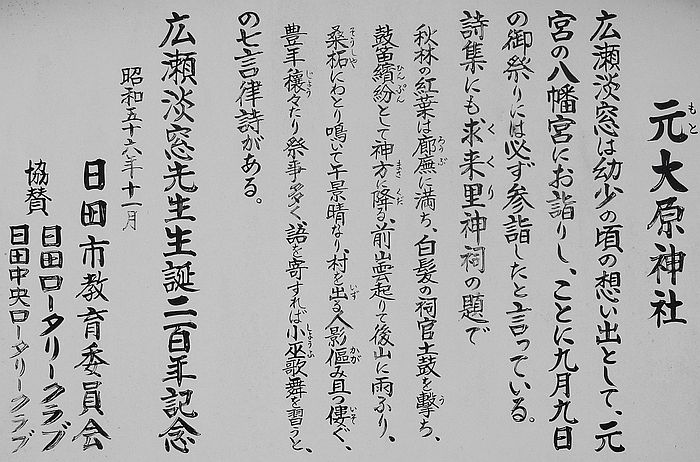 元大原神社
広瀬淡窓は幼少の頃の想い出として、元
宮の八幡宮にお詣りし、ことに九月九日
の御祭りには必ず参詣したと言っている。
詩集にも求来里神祠の題で
秋林の紅葉は廊廡に満ち、白髪の祠官土鼓を撃ち、
鼓笛繽紛として神方に降る、前山雲起りて後山に雨ふり、
桑柘にわとり鳴いて午景晴なり、村を出る人影傴み且つ僂ぐ、
豊年穰々たり祭事多く、話を寄すれば小巫歌舞を習うと、
の七言律詩がある。
広瀬淡窓先生生誕二百年記念
昭和五十六年十一月
日田市教育委員会
協賛 日田ロータリークラブ
日田中央ロータリークラブ